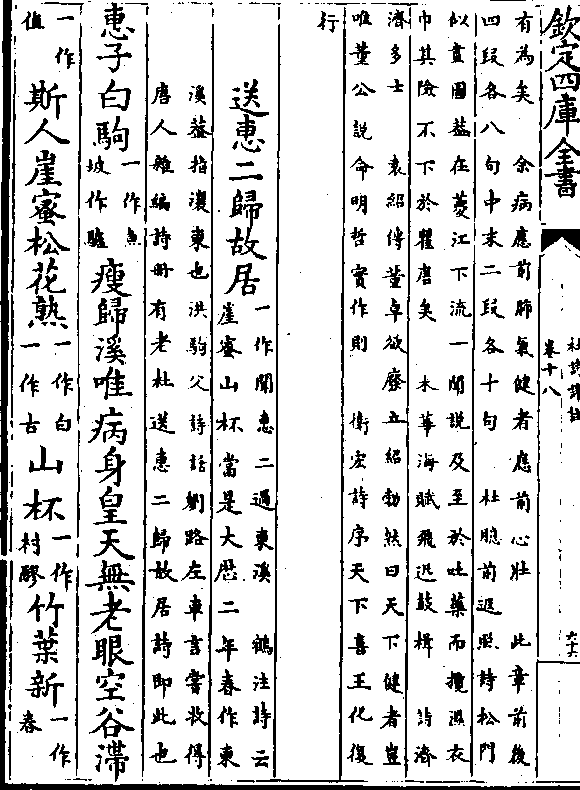 欽定四庫全書
杜詩詳註
卷十八
六十六
有為矣　余病應前肺氣健者應前心壯　此章前後
四段各八句中末二段各十句　杜臆前遐熙詩松門
似畫圖葢在菱江下流一聞說及至於吐藥而攬濕衣
巾其險不下於瞿唐矣　木華海賦飛迅鼓楫　詩濟
濟多士　袁紹傳董卓欲廢立紹勃然曰天下健者豈
唯董公說命明哲實作則　衛宏詩序天下喜王化復
行
送惠二歸故居一作聞惠二過東溪　鶴注詩云
崖蜜山杯當是大歷二年春作東
溪葢指瀼東也洪駒父詩話劉路左車言嘗收得
唐人雜編詩冊有老杜送惠二歸故居詩即此也
惠子白駒一作魚
坡作驢瘦歸溪唯病身皇天無老眼空谷滯
一作
值斯人崖蜜松花熟一作白
一作古山杯一作
村醪竹葉新一作
春